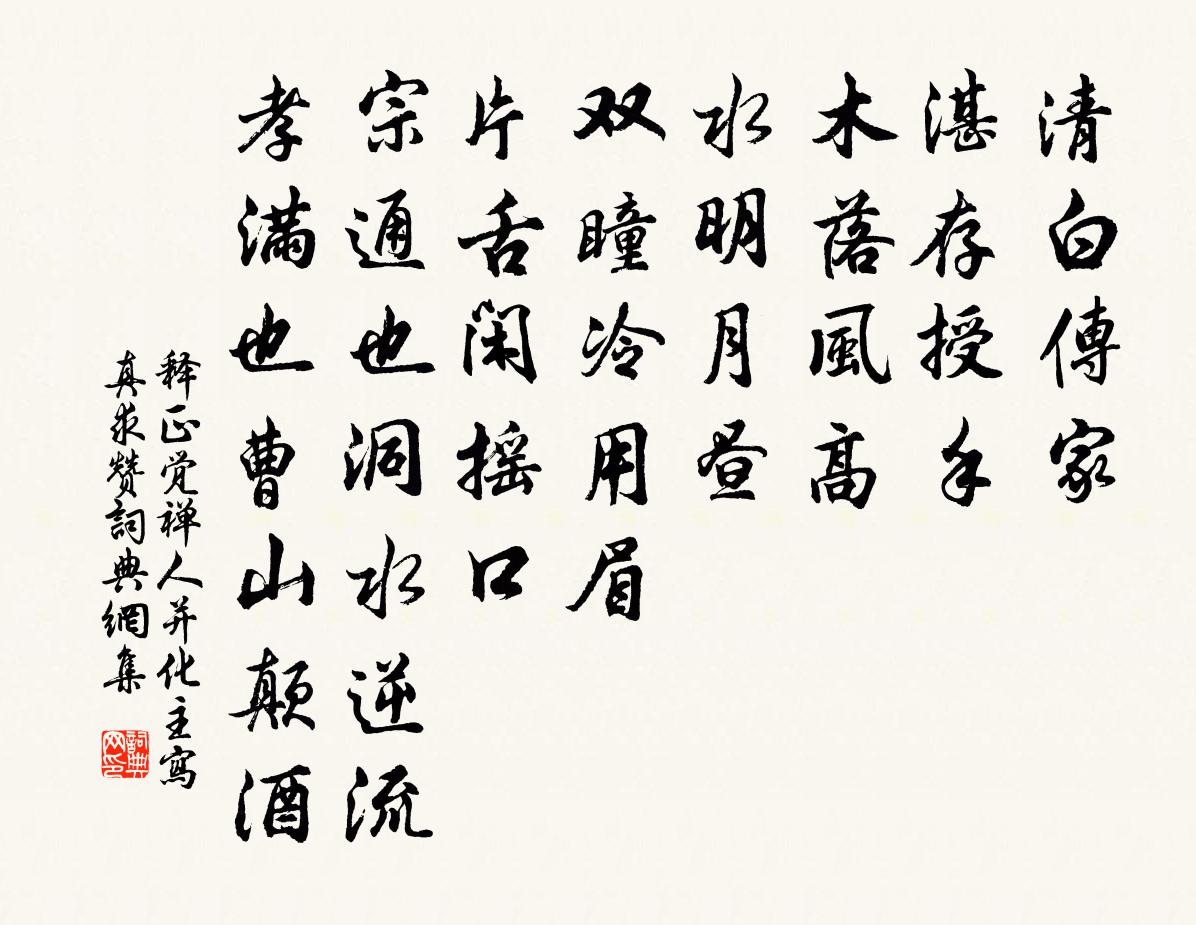 清白傳家
湛存授手
木落風高
水明月昼
双瞳冷用眉
片舌閑摇口
宗通也洞水逆流
孝滿也曹山颠酒
释正觉禅人并化主寫
真求赞詞典網集
詞典网印